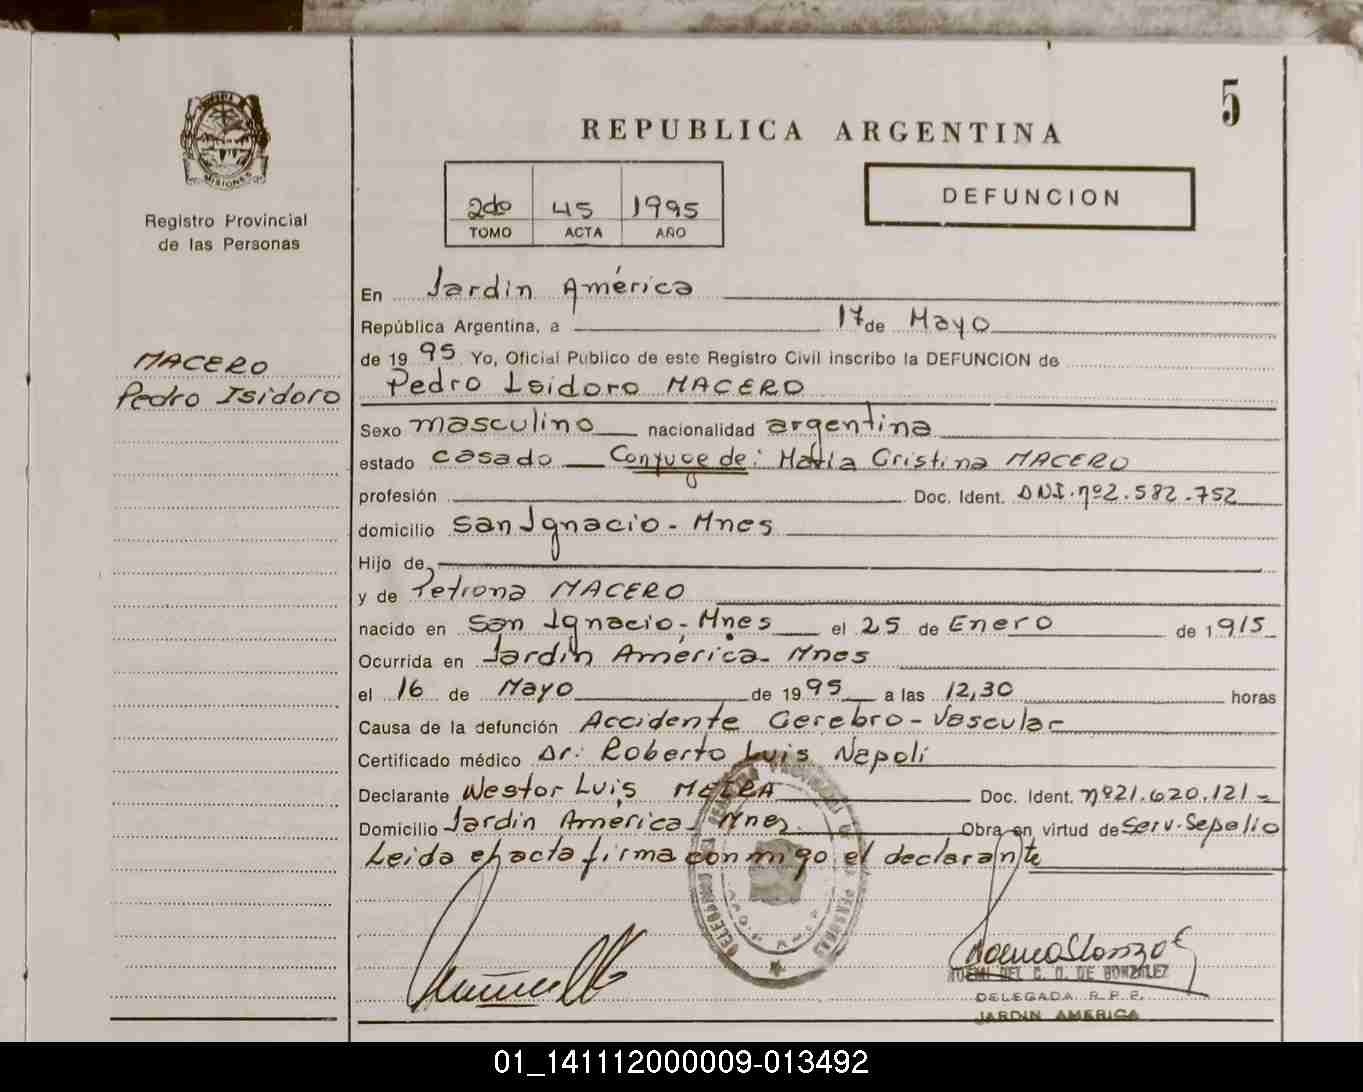 5
REPUBLICA ARGENTINA
MISIONES
Registro Provincial
de las Personas
2do 45 1995
TOMO ACTA AÑO
DEFUNCION
MACERO
Pedro Isidoro
En Jardin América
República Argentina, a 17 de Mayo
de 1995 Yo, Oficial Publico de este Registro Civil inscribo la DEFUNCION de
Pedro Isidoro MACERO
Sexo masculino nacionalidad argentina
estado casado Conyuge de: María Cristina MACERO
profesión Doc. Ident. DNI.nº2.582.752
domicilio San Ignacio - Mnes
Hijo de
y de Petrona MACERO
nacido en San Ignacio - Mnes el 25 de Enero de 1915
Ocurrida en Jardín América - Mnes
el 16 de Mayo de 1995 a las 12,30 horas
Causa de la defunción Accidente Cerebro-Vascular
Certificado médico Dr: Roberto Luis Napoli
Declarante Nestor Luis MEIRA Doc. Ident. nº21.620.121=
Domicilio Jardin América - Mnes. Obra en virtud de Serv. Sepelio
Leida el acta firma conmigo el declarante
NOEMI DEL C. O. DE GONZALEZ
DELEGADA R.P.P.
JARDIN AMERICA
01_141112000009-013492